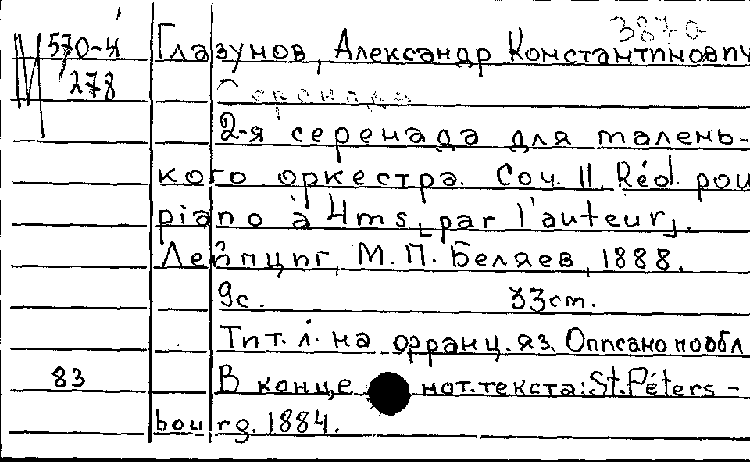 3870
М 570-4 Глазунов, Александр Константинович
278
Серенада
2-я серенада для малень-
кого оркестра. Соч. 11. Réd. pou
piano à 4ms [par l'auteur].
Лейпциг, М.П. Беляев, 1888.
9с. 33cm.
Тит. л. на франц. яз. Описано по обл
83 В конце нот. текста: St. Péters-
bourg. 1884.